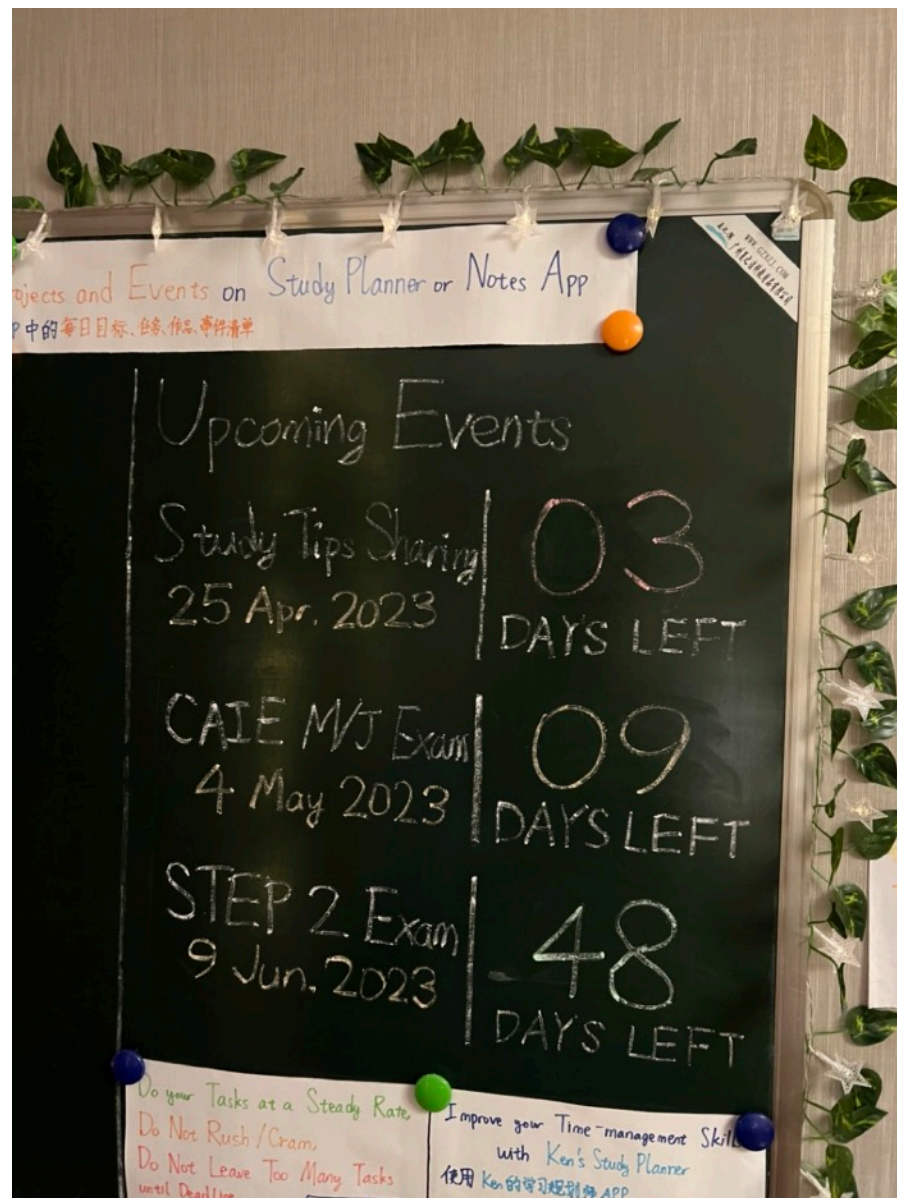 ojects and Events on Study Planner or Notes App
中的每日目标、任务、作品、事件清单
WWW.GZXZJ.COM
Upcoming Events
Study Tips Sharing
25 Apr. 2023
03
DAYS LEFT
CAIE M/J Exam
4 May 2023
09
DAYS LEFT
STEP 2 Exam
9 Jun. 2023
48
DAYS LEFT
Do your Tasks at a Steady Rate,
Do Not Rush/Cram,
Do Not Leave Too Many Tasks
until Deadline
Improve your Time-management Skill
with Ken's Study Planner
使用 Ken的学习规划师 APP